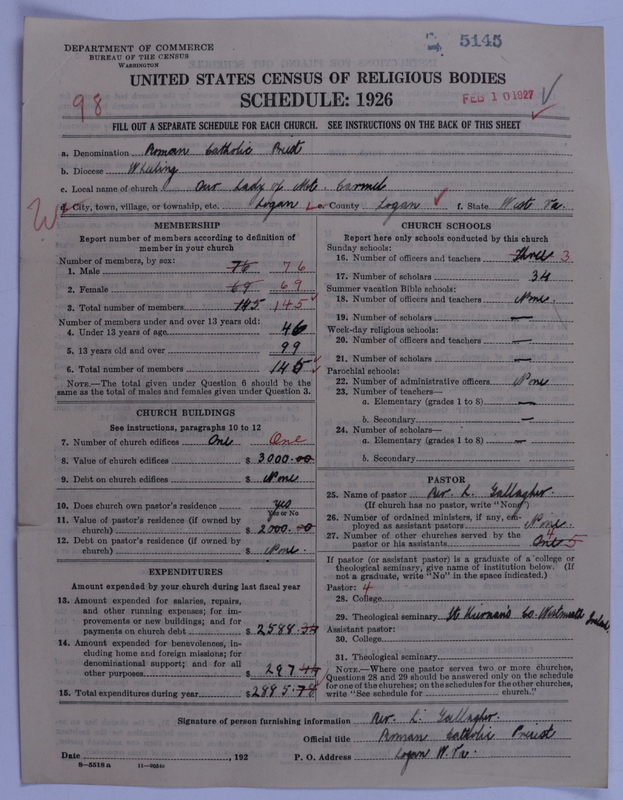 DEPARTMENT OF COMMERCE
BUREAU OF THE CENSUS
WASHINGTON
5145
UNITED STATES CENSUS OF RELIGIOUS BODIES
SCHEDULE: 1926
98
FEB 10 1927
FILL OUT A SEPARATE SCHEDULE FOR EACH CHURCH. SEE INSTRUCTIONS ON THE BACK OF THIS SHEET
a. Denomination Roman Catholic Priest
b. Diocese Wheeling
c. Local name of church Our Lady of Mt. Carmel
d. City, town, village, or township, etc. Logan e. County Logan f. State West Va.
MEMBERSHIP
Report number of members according to definition of
member in your church
Number of members, by sex:
1. Male 76 76
2. Female 69 69
3. Total number of members 145 145
Number of members under and over 13 years old:
4. Under 13 years of age 46
5. 13 years old and over 99
6. Total number of members 145
NOTE.—The total given under Question 6 should be the
same as the total of males and females given under Question 3.
CHURCH BUILDINGS
See instructions, paragraphs 10 to 12
7. Number of church edifices One One
8. Value of church edifices $ 3000.00
9. Debt on church edifices $ None
10. Does church own pastor's residence? yes
Yes or No
11. Value of pastor's residence (if owned by
church) $ 2000.00
12. Debt on pastor's residence (if owned by
church) $ None.
EXPENDITURES
Amount expended by your church during last fiscal year
13. Amount expended for salaries, repairs,
and other running expenses; for im-
provements or new buildings; and for
payments on church debt $ 2588.
14. Amount expended for benevolences, in-
cluding home and foreign missions; for
denominational support; and for all
other purposes $ 297
15. Total expenditures during year $ 2885.74
CHURCH SCHOOLS
Report here only schools conducted by this church
Sunday schools:
16. Number of officers and teachers three 3
17. Number of scholars 34
Summer vacation Bible schools:
18. Number of officers and teachers None.
19. Number of scholars —
Week-day religious schools:
20. Number of officers and teachers —
21. Number of scholars —
Parochial schools:
22. Number of administrative officers None
23. Number of teachers—
a. Elementary (grades 1 to 8) —
b. Secondary —
24. Number of scholars—
a. Elementary (grades 1 to 8) —
b. Secondary
PASTOR
25. Name of pastor Rev. L. Gallagher.
(If church has no pastor, write "None")
26. Number of ordained ministers, if any, em-
ployed as assistant pastors None.
27. Number of other churches served by the
pastor or his assistants One 4 5
If pastor (or assistant pastor) is a graduate of a college or
theological seminary, give name of institution below. (If
not a graduate, write "No" in the space indicated.)
Pastor: 4
28. College
29. Theological seminary St Kiernan's Co. Westmeath Ireland.
Assistant pastor:
30. College
31. Theological seminary
NOTE.—Where one pastor serves two or more churches,
Questions 28 and 29 should be answered only on the schedule
for one of the churches; on the schedules for the other churches,
write "See schedule for church."
Signature of person furnishing information Rev. L. Gallagher.
Official title Roman Catholic Priest
Date , 192 P. O. Address Logan W. Va.
8—5518 a